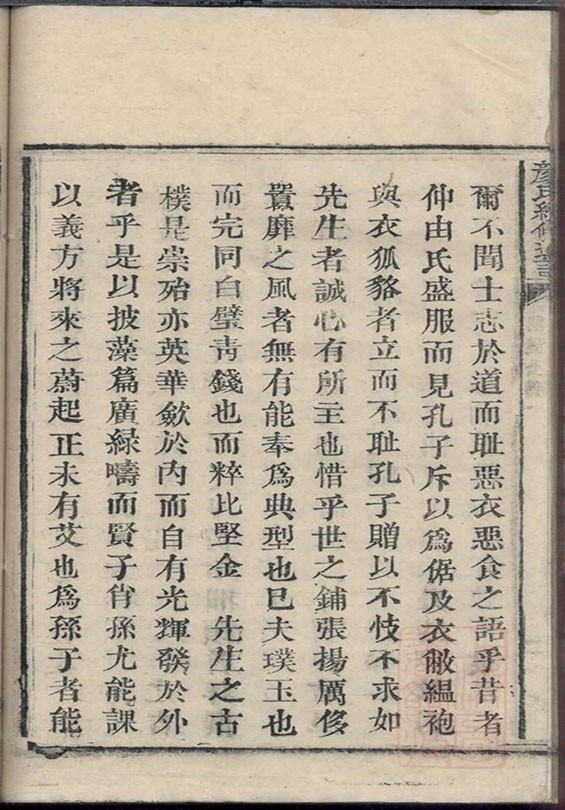 爾不聞士志於道而恥惡衣惡食之語乎昔者
仲由氏盛服而見孔子斥以爲倨及衣敝縕袍
與衣狐貉者立而不恥孔子贈以不忮不求如
先生者誠心有所主也惜乎世之鋪張揚厲侈
囂靡之風者無有能奉爲典型也已夫璞玉也
而完同白璧靑錢也而粹比堅金 先生之古
樸是崇殆亦英華斂於內而自有光輝發於外
者乎是以披藻篇廣綠疇而賢子肖孫尤能課
以義方將來之蔚起正未有艾也爲孫子者能